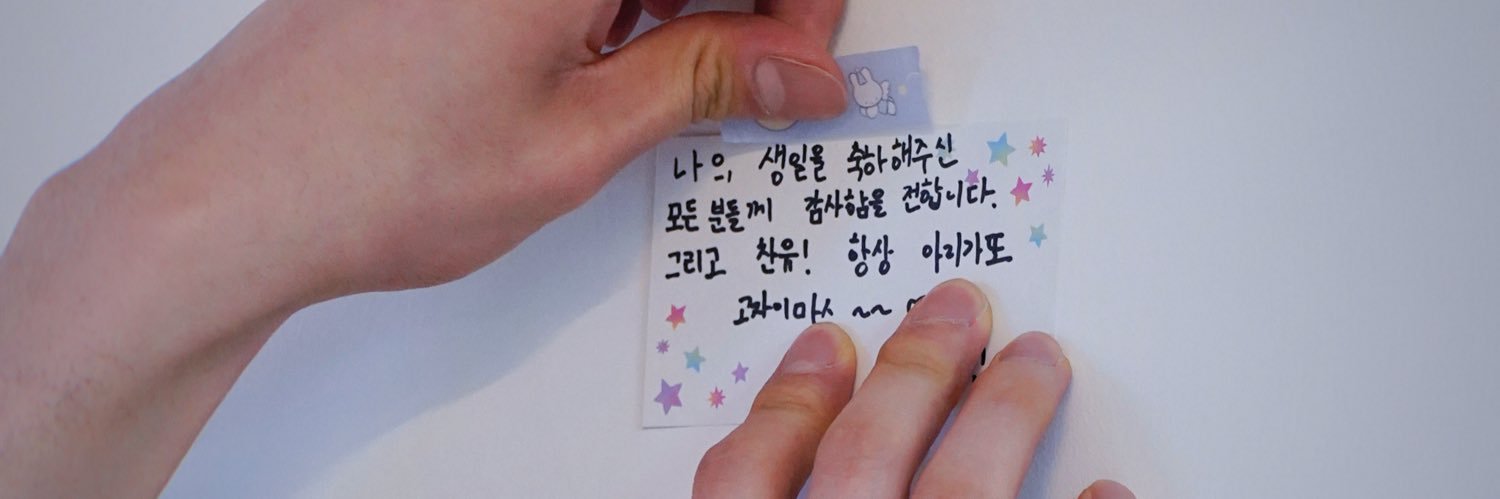 나의 생일을 축하해주신
모든 분들께 감사함을 전합니다.
그리고 찬유! 항상 아리가또
고자이마스 ~~